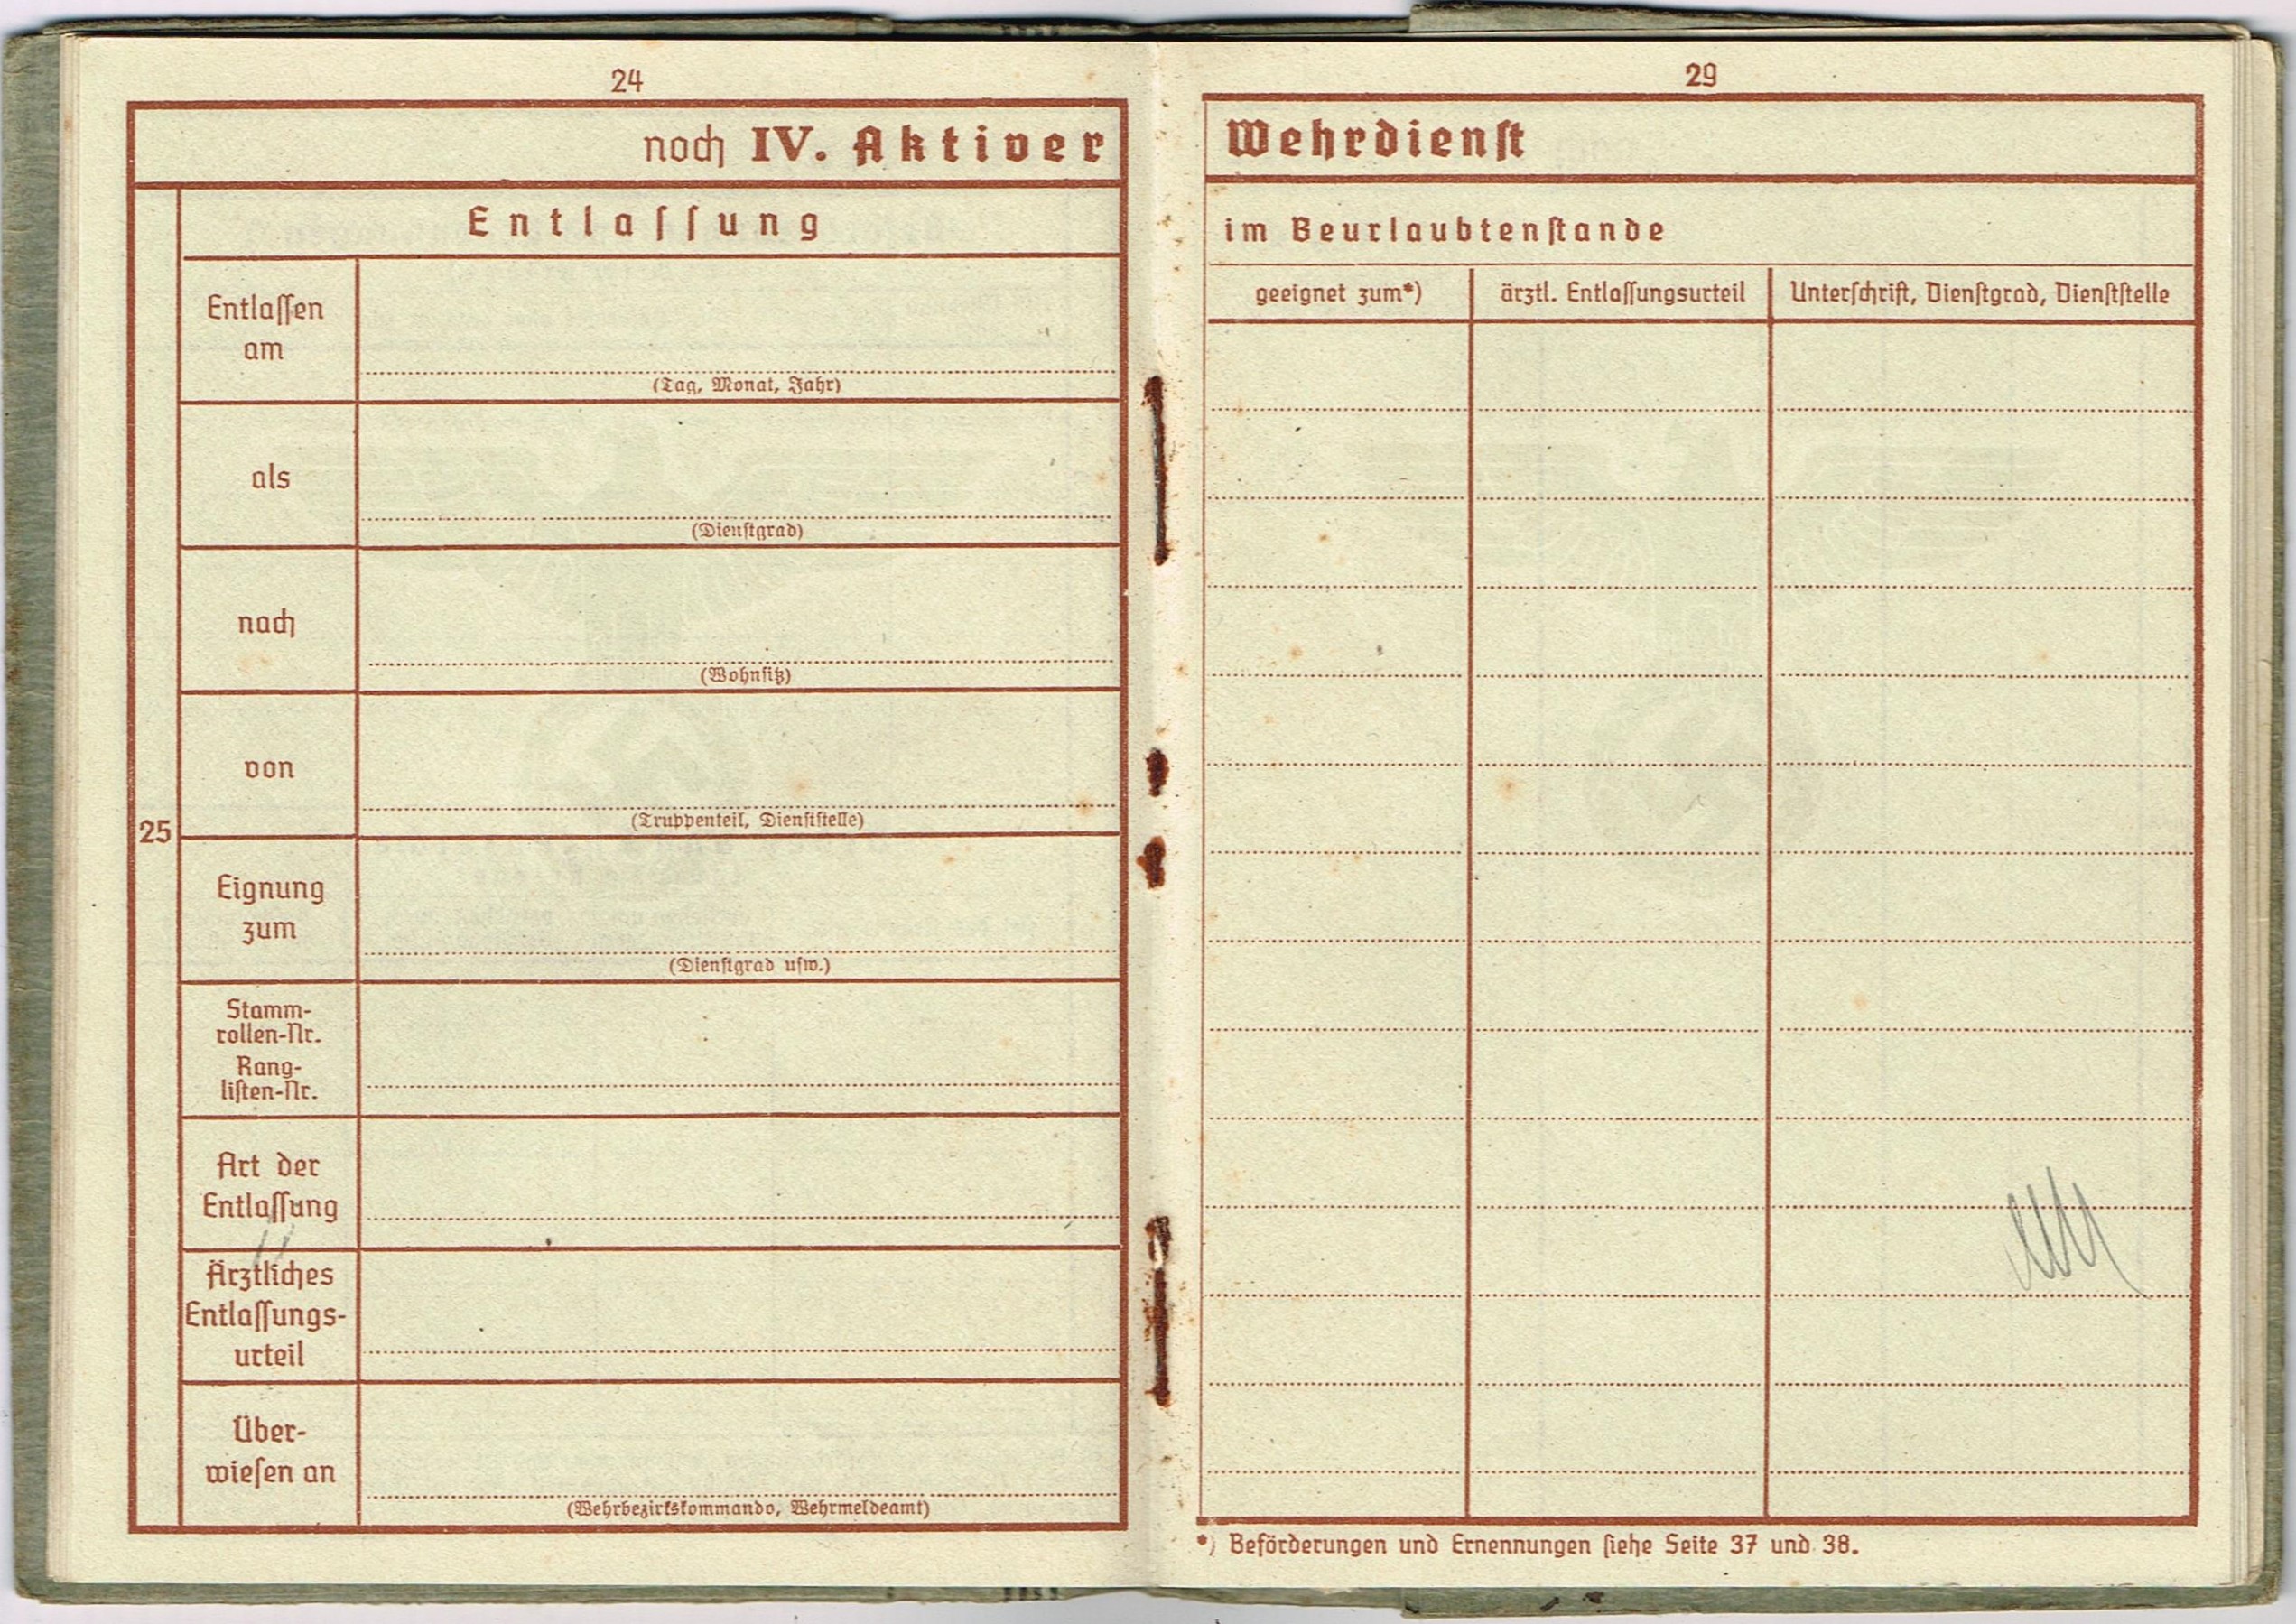 24
noch IV. Aktiver
Entlaſſung
Entlaſſen
am
(Tag, Monat, Jahr)
als
(Dienſtgrad)
nach
(Wohnſitz)
von
(Truppenteil, Dienſtſtelle)
25
Eignung
zum
(Dienſtgrad uſw.)
Stamm-
rollen-Nr.
Rang-
liſten-Nr.
Art der
Entlaſſung
Ärztliches
Entlaſſungs-
urteil
Über-
wieſen an
(Wehrbezirkskommando, Wehrmeldeamt)
29
Wehrdienſt
im Beurlaubtenſtande
geeignet zum*)
ärztl. Entlaſſungsurteil
Unterſchrift, Dienſtgrad, Dienſtſtelle
*) Beförderungen und Ernennungen ſiehe Seite 37 und 38.